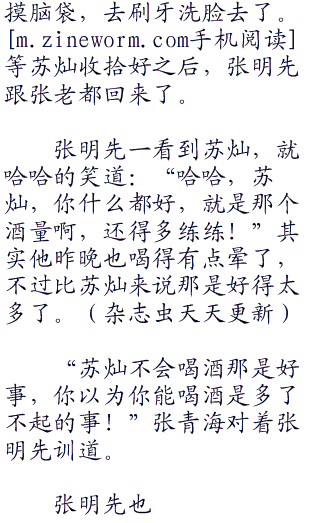 摸脑袋，去刷牙洗脸去了。
[m.zineworm.com手机阅读]
等苏灿收拾好之后，张明先
跟张老都回来了。
张明先一看到苏灿，就
哈哈的笑道：“哈哈，苏
灿，你什么都好，就是那个
酒量啊，还得多练练！”其
实他昨晚也喝得有点晕了，
不过比苏灿来说那是好得太
多了。（杂志虫天天更新）
“苏灿不会喝酒那是好
事，你以为你能喝酒是多了
不起的事！”张青海对着张
明先训道。
张明先也